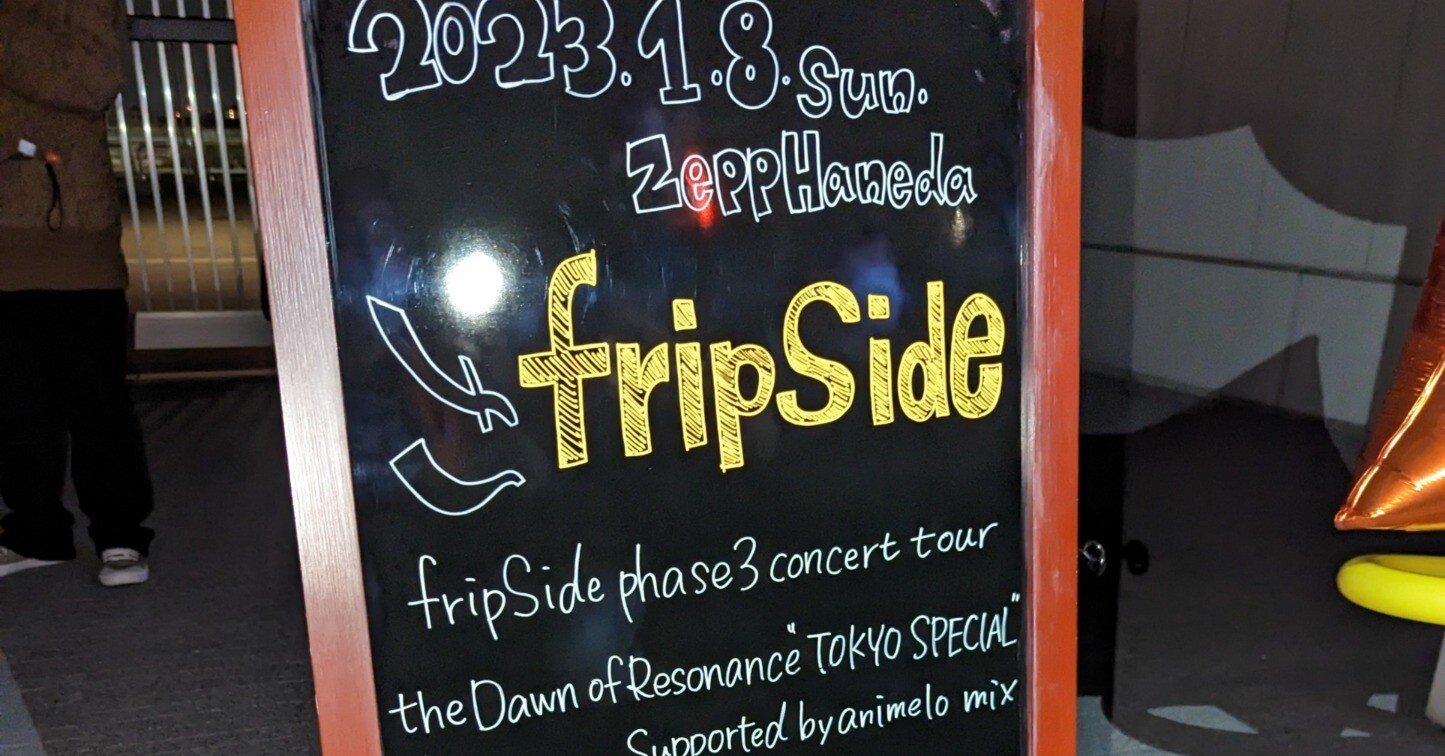 2023.1.8.Sun.
ZeppHaneda
fripSide
fripSide phase3 concert tour
the Dawn of Resonance "TOKYO SPECIAL"
Supported by animelo mix